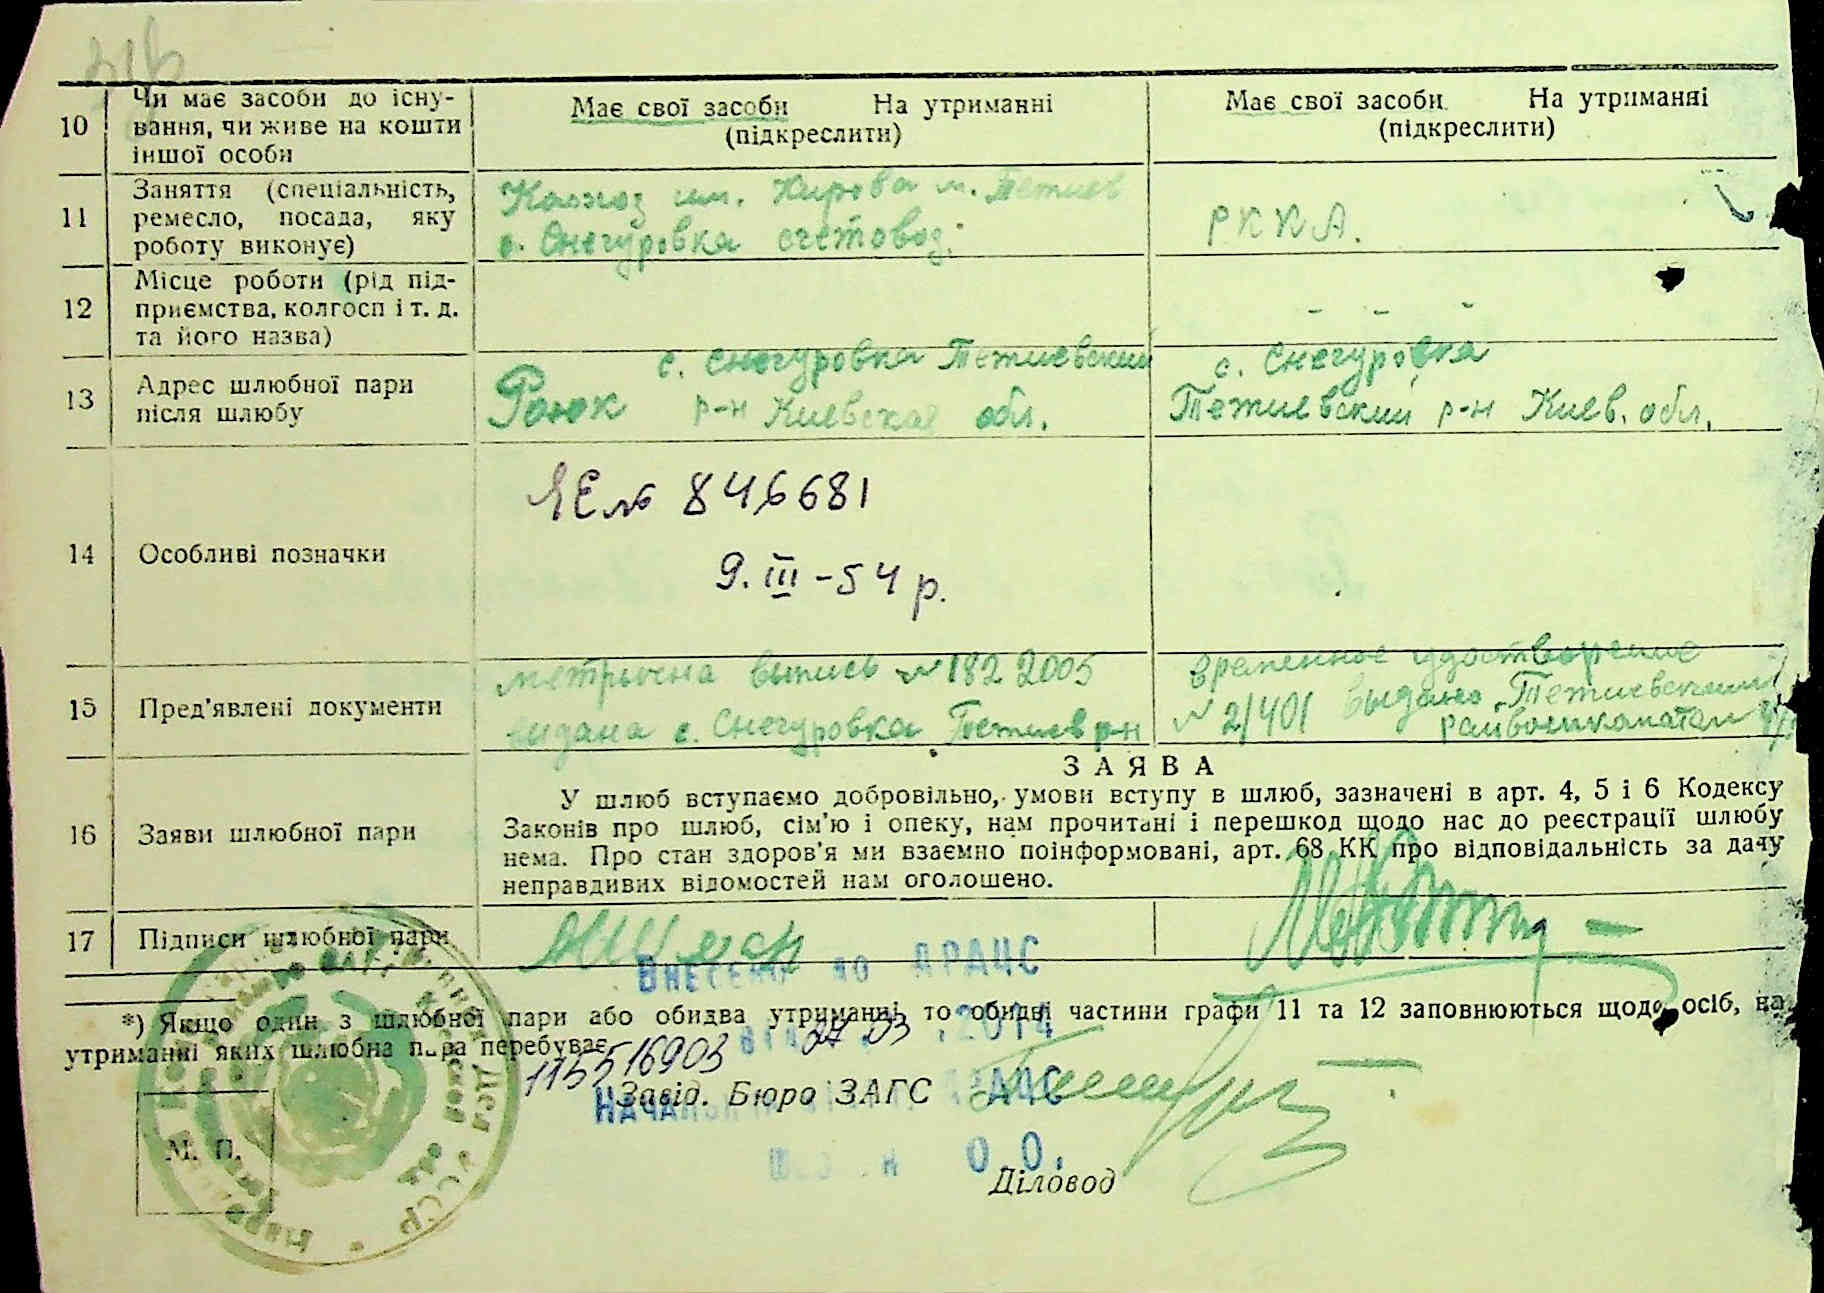 10 Чи має засоби до існу-
вання, чи живе на кошти
іншої особи
Має свої засоби На утриманні
(підкреслити)
Має свої засоби На утриманні
(підкреслити)
11 Заняття (спеціальність,
ремесло, посада, яку
роботу виконує)
Колхоз им. Кирова м. Тетиев
с. Снегуровка счетовод.
РККА.
12 Місце роботи (рід під-
приємства, колгосп і т. д.
та його назва)
- - -
13 Адрес шлюбної пари
після шлюбу
с. Снегуровка Тетиевский
р-н Киевская обл.
с. Снегуровка
Тетиевский р-н Киев. обл.
14 Особливі позначки
ЯЕ № 846681
9. III - 54 р.
15 Пред'явлені документи
метрычна выпись № 182 2005
видана с. Снегуровка Тетиев р-н
временное удостверение
№ 2/401 выдано Тетиевским
райвоенкоматом
16 Заяви шлюбної пари
ЗАЯВА
У шлюб вступаємо добровільно, умови вступу в шлюб, зазначені в арт. 4, 5 і 6 Кодексу
Законів про шлюб, сім'ю і опеку, нам прочитані і перешкод щодо нас до реєстрації шлюбу
нема. Про стан здоров'я ми взаємно поінформовані, арт. 68 КК про відповідальність за дачу
неправдивих відомостей нам оголошено.
17 Підписи шлюбної пари
Внесено до ДРАЦС
*) Якщо один з шлюбної пари або обидва утриманні, то обидві частини графи 11 та 12 заповнюються щодо осіб, на
утриманні яких шлюбна пара перебуває.
27 03 .2014
115516903
Завід. Бюро ЗАГС
ДРАЦС
М. П.
О.О.
Діловод